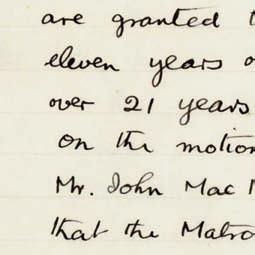 are granted t
eleven years o
over 21 years
on the motion
Mr. John Mac
that the Matro